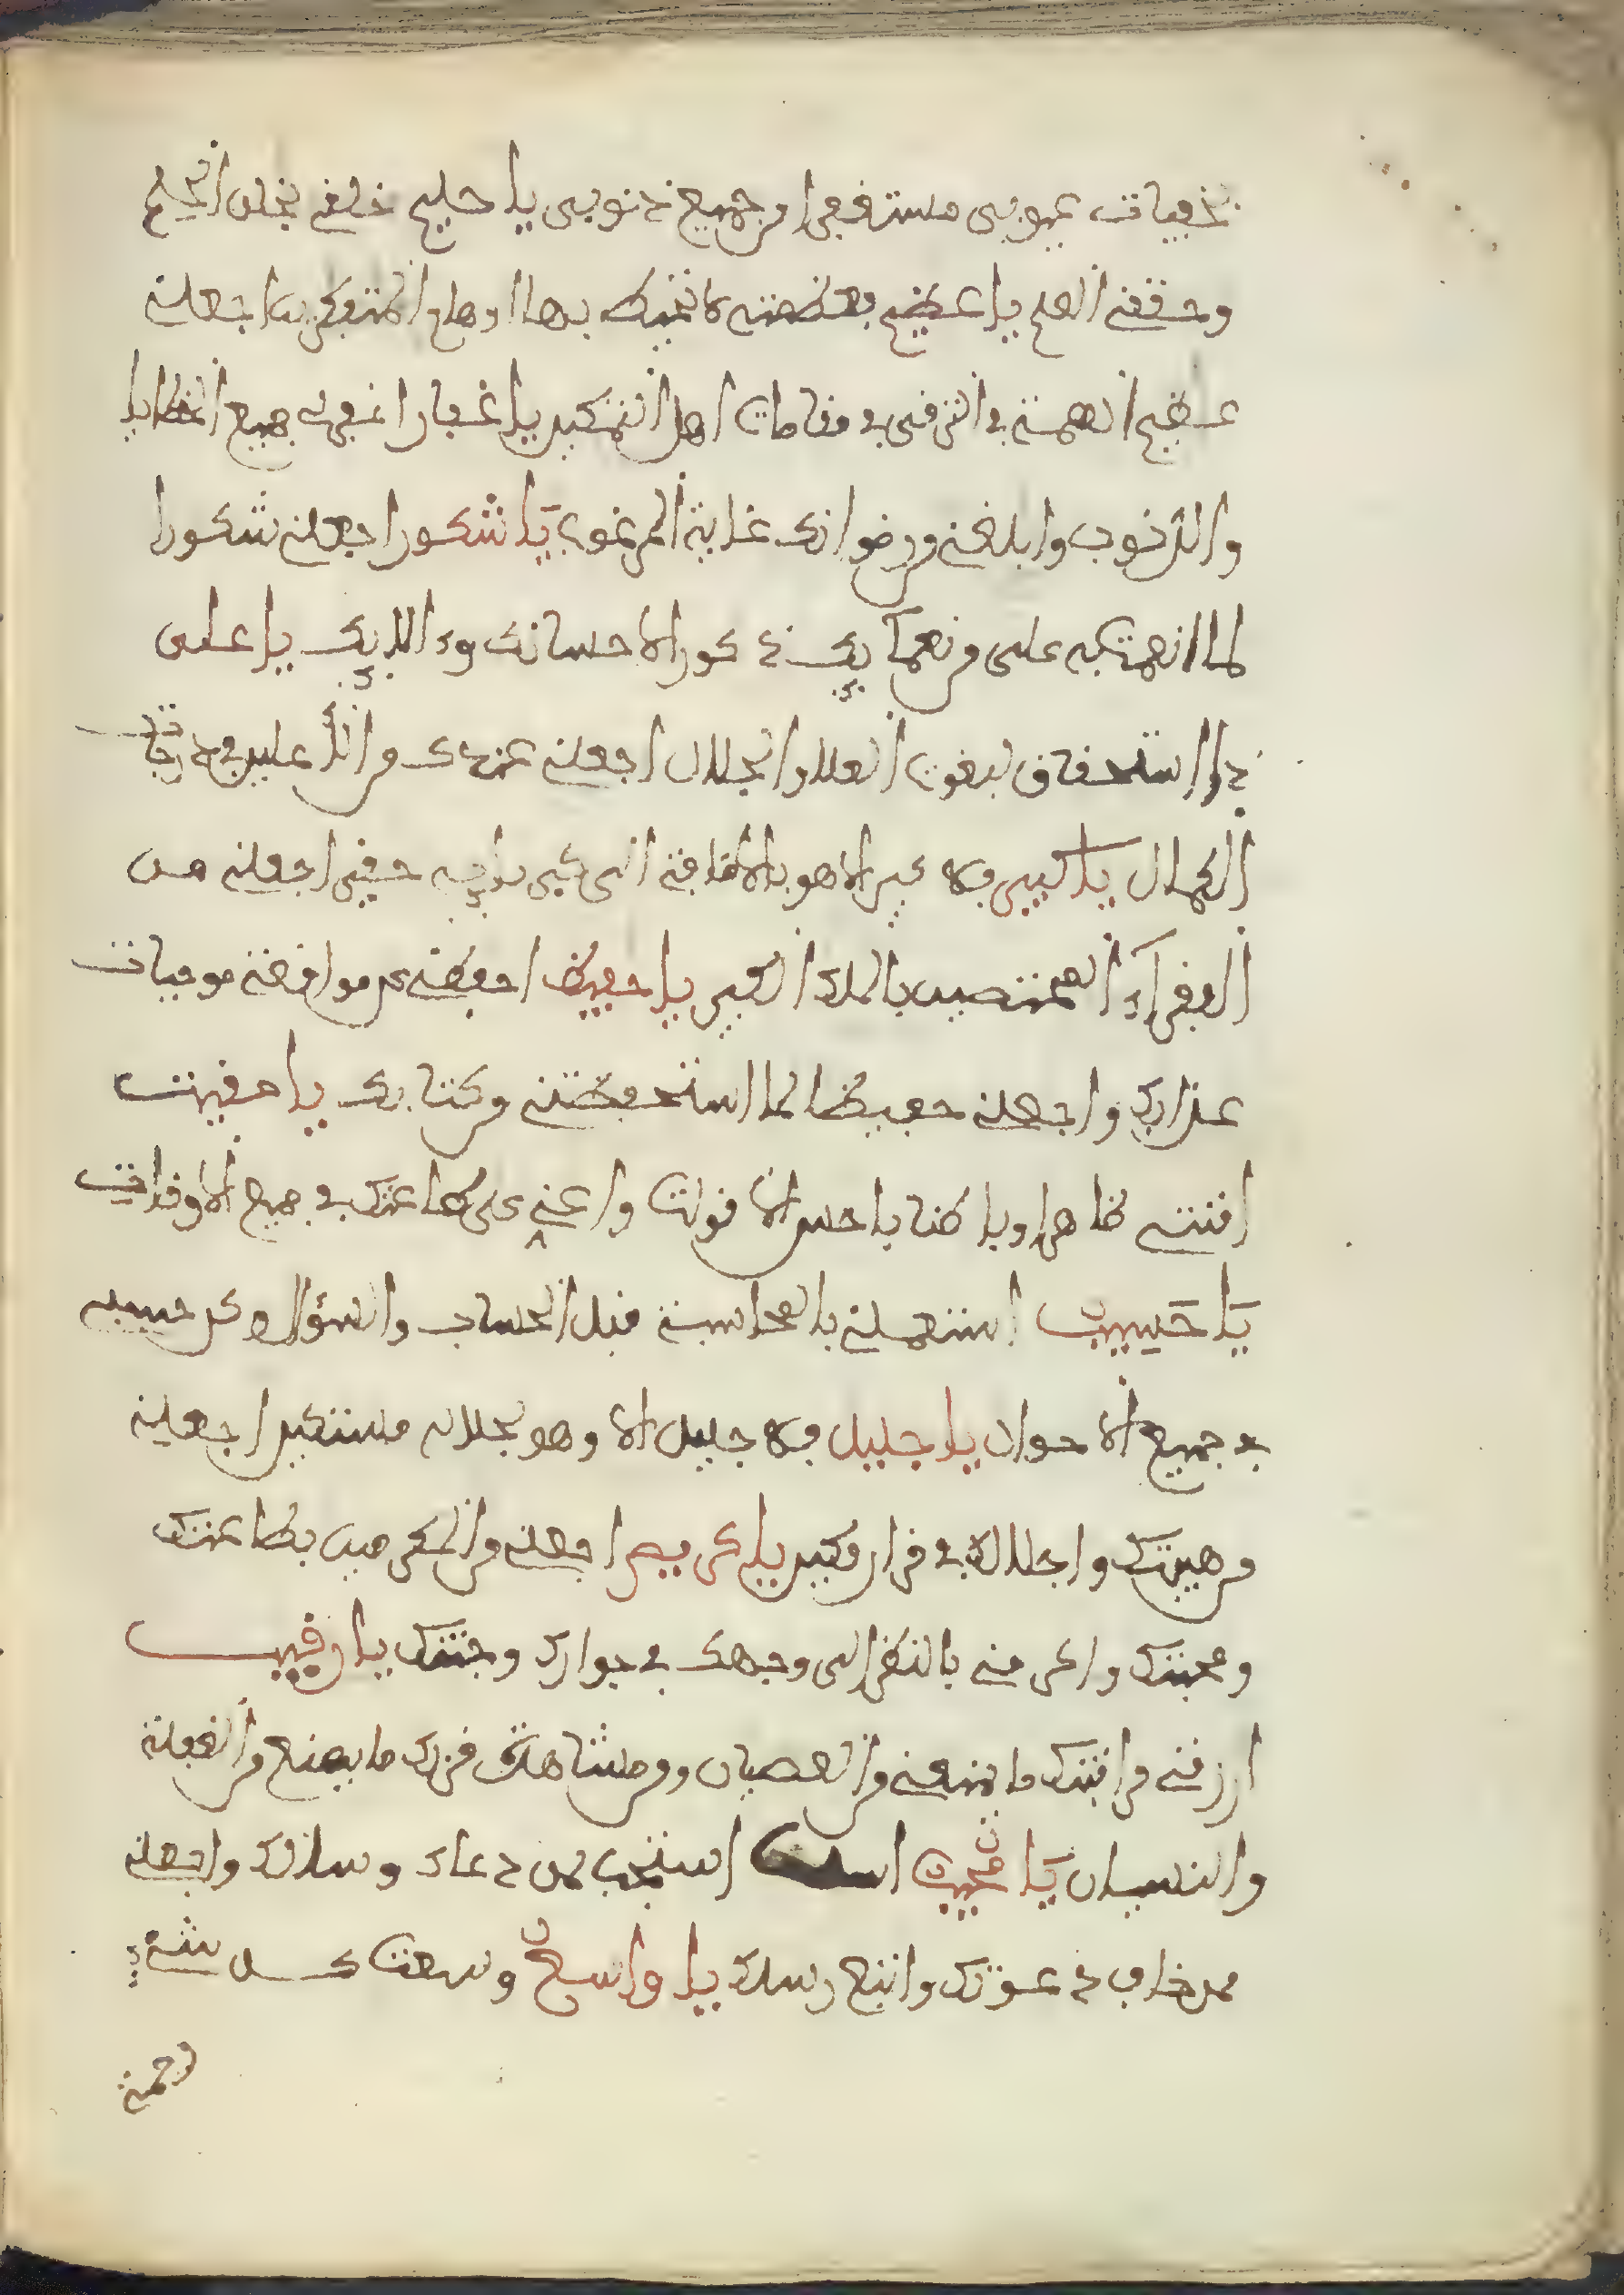 بخفيات عيوبي مستغفرا من جميع ذنوبي يا حليم خلقني بخلق الحلم
وحققني العلم يا عظيم فعظمته لا تحيط بها اوهام المتفكرين اجعلني
عظيم الهمة في الترقي في مقامات اهل التمكين يا غفار اغفر لي جميع الخطايا
والذنوب وابلغني من رضوانك غاية المرغوب يا شكور اجعلني شكورا
لما انعمت به علي من نعمآيك ذكورا لاحسانك وءالايك يا علي
ذوا استحقاق لنعوت العلا والجلال اجعلني عندك من الأعلين في درجات
الكمال يا كبير فلا كبير الا هو بالاضافة الى كبريايه حقير اجعلني من
الفقرآء المختصين بالملك الكبير يا حفيظ احفظني عن مواقعة موجبات
عذابك واجعلني حفيظا لما استحفظتني من كتابك يا مقيت
اقتني ظاهرا وباطنا باحسن الاقوات واعني على طاعتك في جميع الاوقات
يا حسيب استعملني بالمحاسبة قبل الحساب والسؤال وكن حسبي
في جميع الاحوال يا جليل فلا جليل الا وهو لجلاله مستكين اجعلني
من هيبتك واجلالك في قرار مكين يا كريم اجعلني من المكرمين بطاعتك
ومحبتك واكرمني بالنظر الى وجهك في جوارك وجنتك يا رقيب
ارزقني مراقبتك ما يمنعني من العصيان ومن مشاهدة قربك ما يمنع من الغفلة
والنسيان يا مجيب استجب لمن دعاك وسالك واجعلني
ممن خاب دعوتك واتبع رسلك يا واسع وسعت كل شيء
رحمة